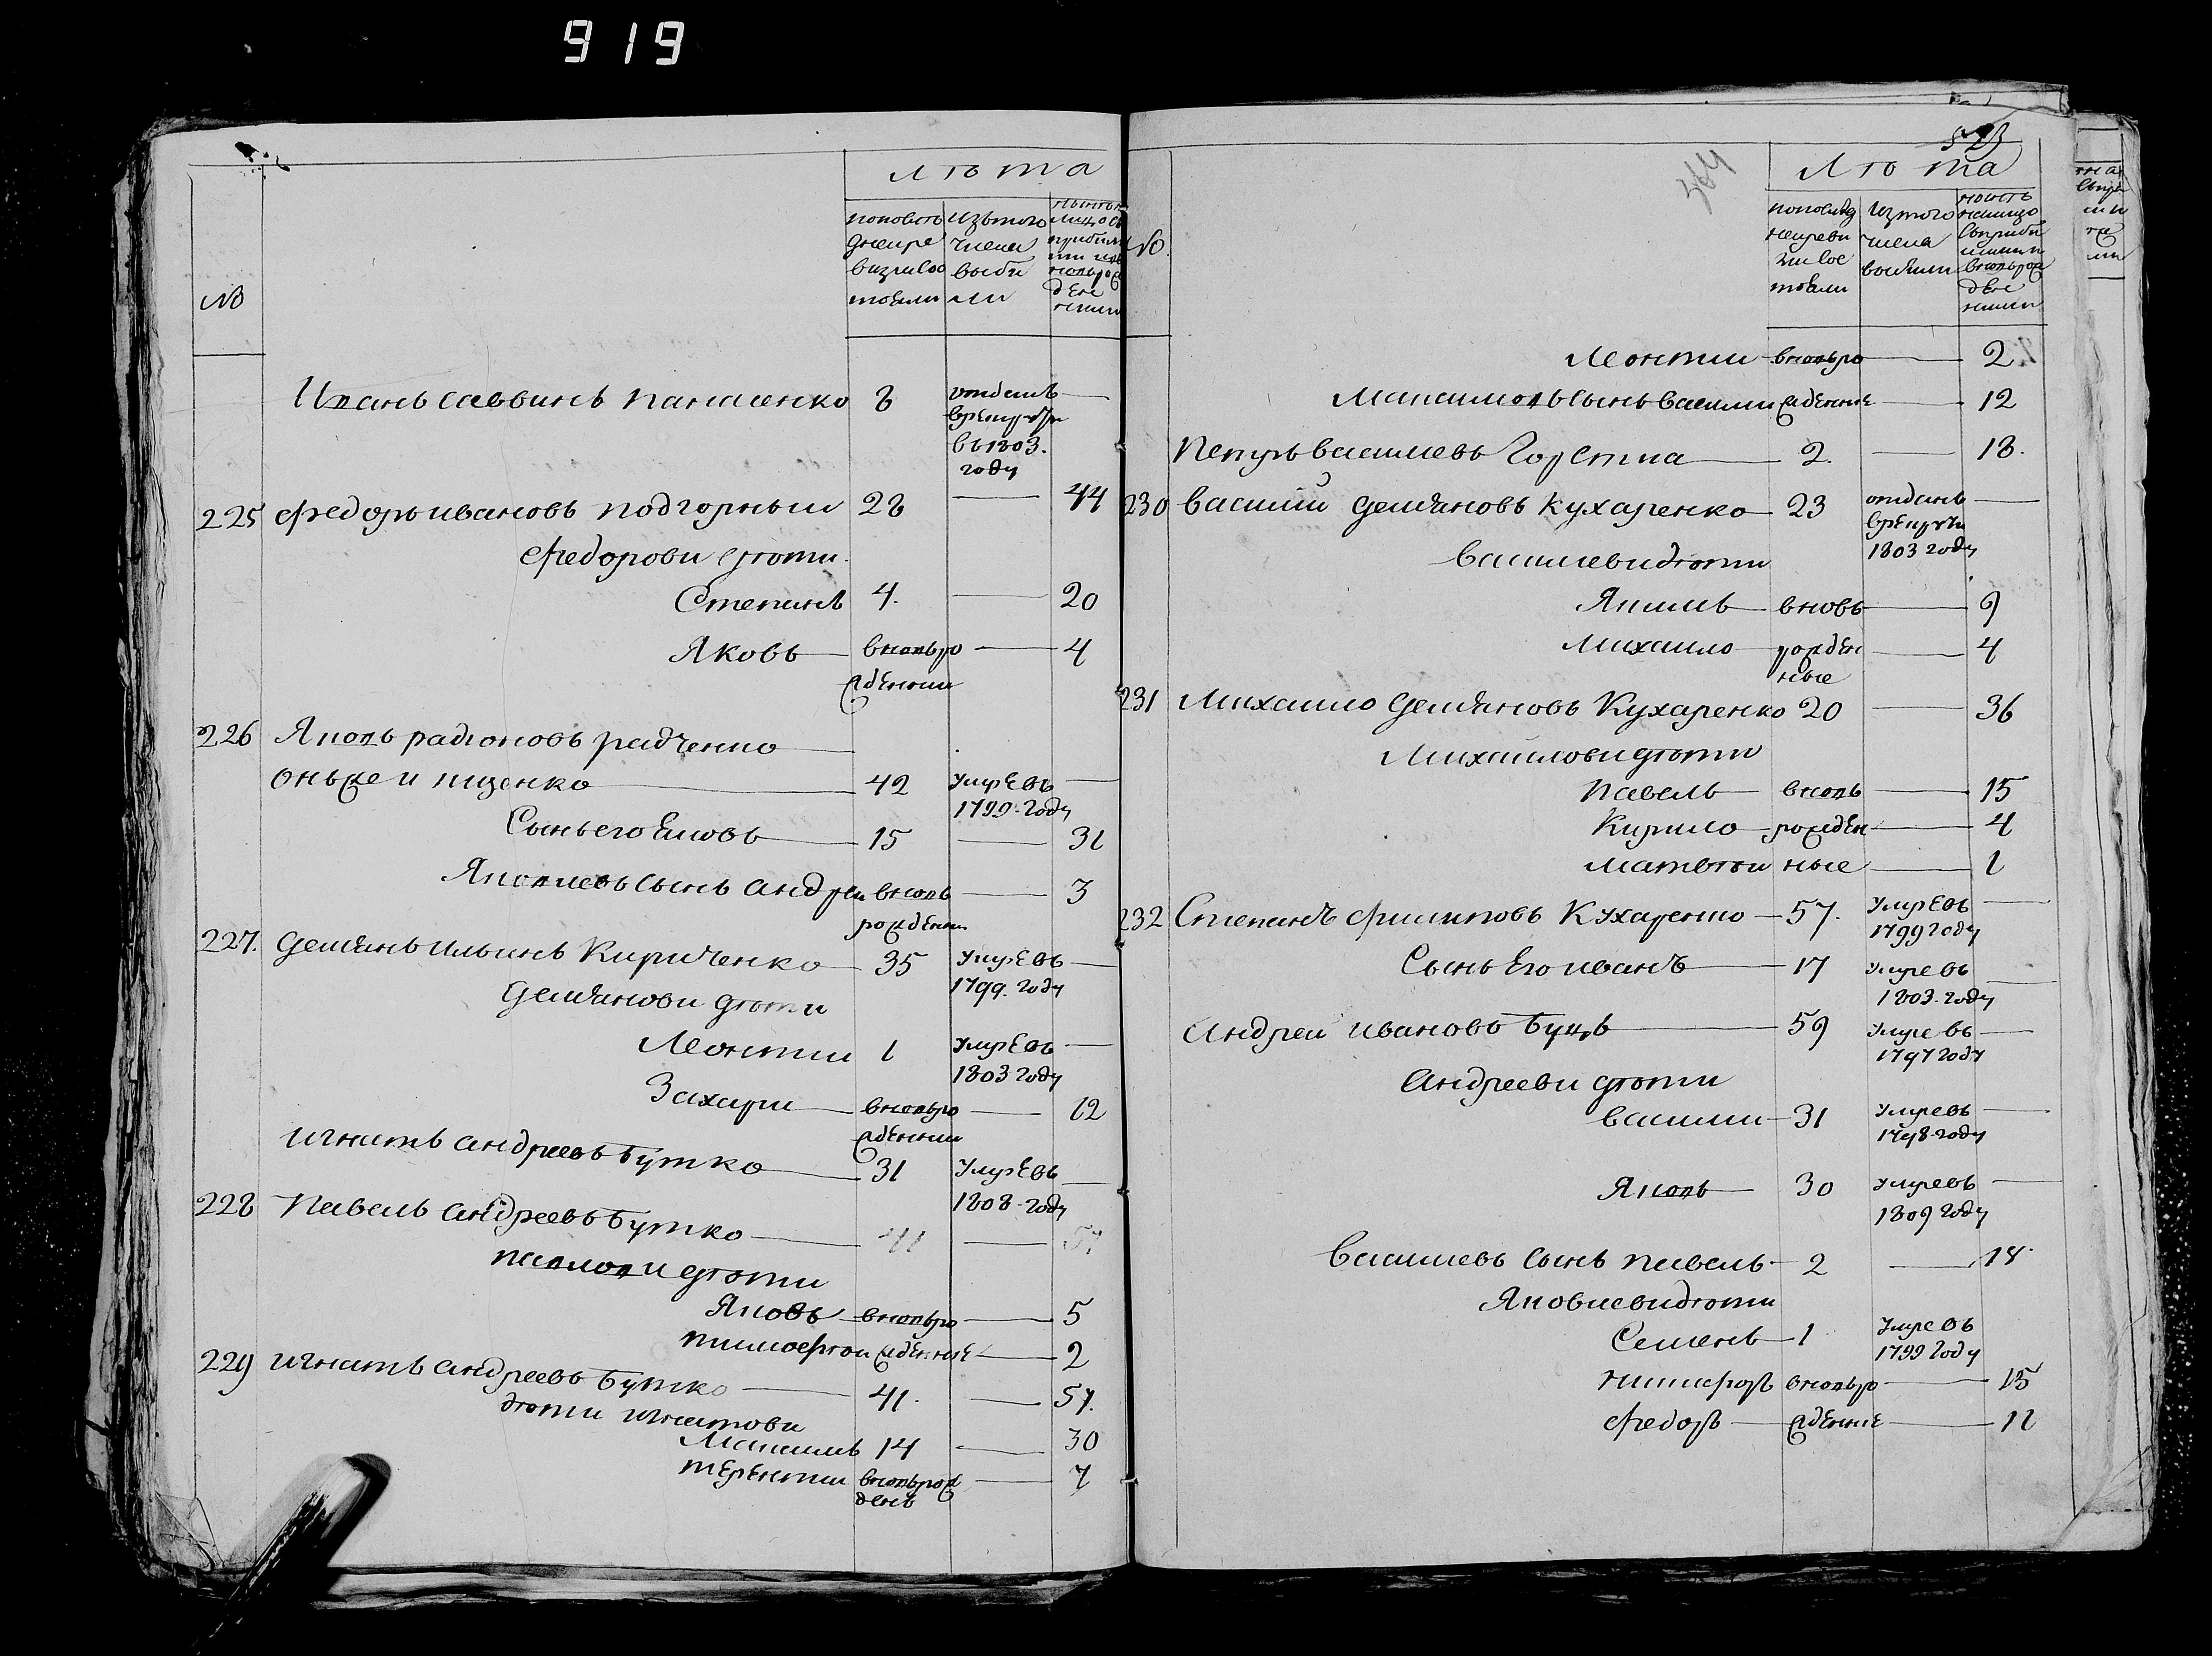 919
лѣта
№
попослѣ
дней ре
визии со
стояли
изътого
числа
выбы
ли
Иванъ саввинъ панасенко 8 отданъ
врекруты
въ 1803.
году
225 Федоръ ивановъ подгорный 28 — 44
Федорови дѣти
Степанъ 4. — 20
Яковъ — вновьро — 4
жденный
226 Яковъ радіоновъ радченко —
онъже и ищенко — 42 умревъ —
1799. году
Сынъ его Емовъ — 15 — 31
Яковлевъ сынъ андрей вновь — 3
рожденны
227. Демянъ ильинъ Кириченко — 35 умревъ —
1799. году
Демянови дѣти
Леонтий 1 умревъ —
1803 году
Захари — вновьро — 12
жденный
игнатъ андреевъ бутко — 31 умревъ —
1808. году
228 Павелъ андреевъ бутко — 41 — 57
павлови дѣти
Яковъ — вновьро — 5
тимофѣи жденные — 2
229 игнатъ андреевъ бутко — 41. — 57.
дѣти игнатови
Максимъ 14 — 30
терентии вновьрож — 7
денъ
523
364
лѣта
№
попослѣд
ней реви
зии сос
тояли
изтого
числа
выбыли
Леонтии — вновьро — 2
Максимовъ сынъ василии жденные — 12
Петръ василиевъ Горстка — 2. — 18.
230 василий демяновъ кухаренко — 23 отданъ —
врекруты
1803 году
василиеви дѣти
Якимъ — вновь — 9
Михаило — рожден — 4
ные
231 Михаило демяновъ Кухаренко 20 — 36
Михаилови дѣти
павелъ — вновь — 15
Кирило — рожден — 4
матвѣи ные — 1
232 Степанъ филиповъ Кухаренко — 57. умревъ —
1799 году
Сынъ Его иванъ — 17 умревъ —
1803. году
Андреи ивановъ буцъ — 59 умревъ —
1797 году
Андрееви дѣти
василии — 31 умревъ —
1798. году
Яковъ — 30 умревъ —
1809 году
василиевъ сынъ павелъ — 2 — 18.
Яковлеви дѣти
Семенъ — 1 умревъ
1799 году
никифоръ вновьро — 15
федоръ — жденные — 12